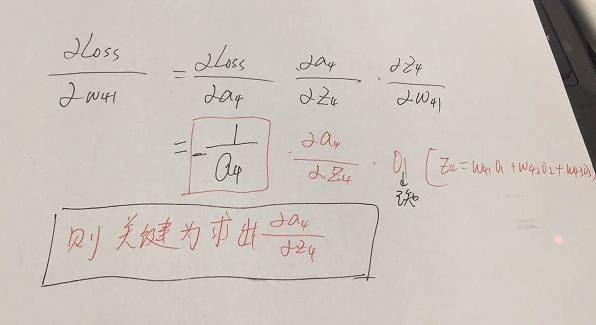 ∂Loss/∂w41 = ∂Loss/∂a4 · ∂a4/∂z4 · ∂z4/∂w41
= -1/a4 · ∂a4/∂z4 · O1 [z4 = w41O1 + w42O2 + w43O3
↓
已知
则关键为求出 ∂a4/∂z4